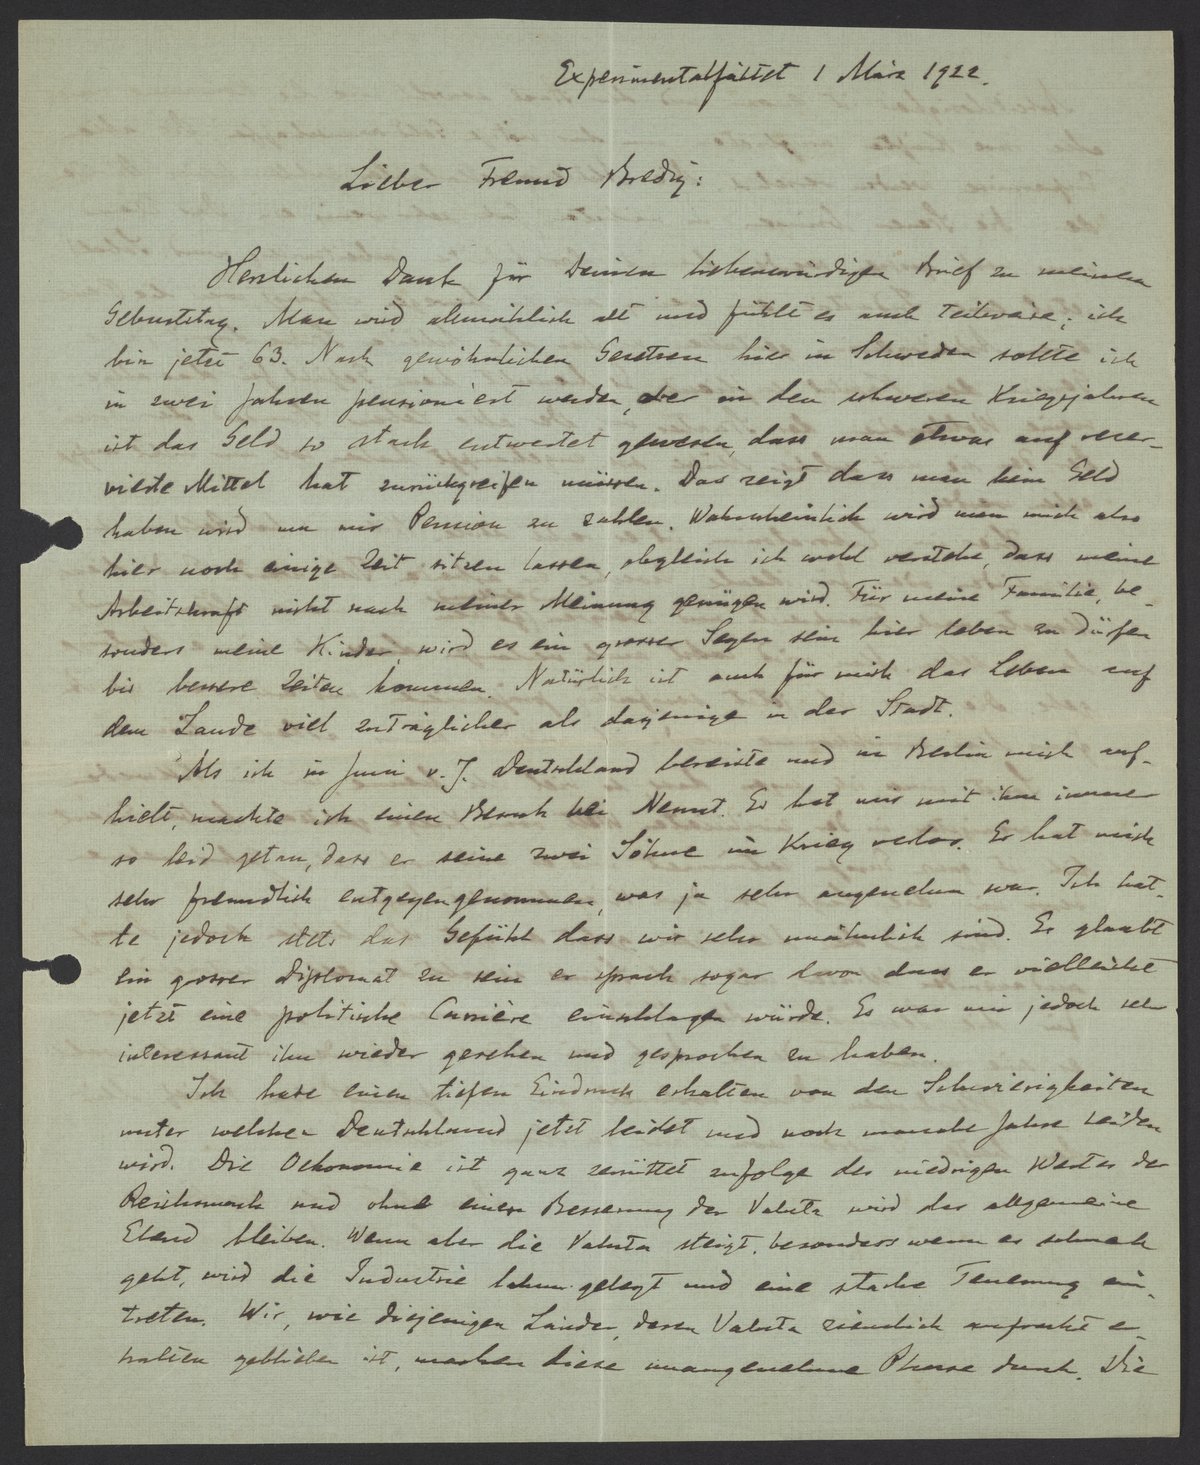 Experimentalfältet 1 März 1922.
Lieber Freund Bredig:
Herzlichen Dank für Deinen liebenswürdigen Brief zu meinem
Geburtstag. Man wird allmählich alt und fühlt es auch teilweise; ich
bin jetzt 63. Nach gewöhnlichen Gesetzen hier in Schweden sollte ich
in zwei Jahren pensioniert werden, aber in den schweren Kriegsjahren
ist das Geld so stark entwertet gewesen, dass man etwas auf reser-
vierte Mittel hat zurückgreifen müssen. Das zeigt dass man kein Geld
haben wird um mir Pension zu zahlen. Wahrscheinlich wird man mich also
hier noch einige Zeit sitzen lassen, obgleich ich wohl verstehe, dass meine
Arbeitskraft nicht nach meiner Meinung genügen wird. Für meine Familie, be-
sonders meine Kinder, wird es ein grosser Segen sein hier leben zu dürfen
bis bessere Zeiten kommen. Natürlich ist auch für mich das Leben auf
dem Lande viel zuträglicher als dasjenige in der Stadt.
Als ich in Juni v. J. Deutschland bereiste und in Berlin mich auf-
hielt, machte ich einen Besuch bei Nernst. Es hat mir mit ihm immer
so leid getan, dass er seine zwei Söhne im Krieg verlor. Er hat mich
sehr freundlich entgegengenommen, was ja sehr angenehm war. Ich hat-
te jedoch stets das Gefühl dass wir sehr unähnlich sind. Er glaubt
ein grosser Diplomat zu sein er sprach sogar davon dass er vielleicht
jetzt eine politische Carrière einschlagen würde. Es war mir jedoch sehr
interessant ihn wieder gesehen und gesprochen zu haben.
Ich habe einen tiefen Eindruck erhalten von den Schwierigkeiten
unter welchen Deutschland jetzt leidet und noch manche Jahre leiden
wird. Die Oekonomie ist ganz zerüttet zufolge des niedrigen Wertes der
Reichsmark und ohne einer Besserung der Valuta wird das allgemeine
Elend bleiben. Wenn aber die Valuta steigt, besonders wenn es schnell
geht, wird die Industrie lahm gelegt und eine starke Teuerung ein-
treten. Wir, wie diejenigen Länder, deren Valuta ziemlich aufrecht er-
halten geblieben ist, machen diese unangenehme Phase durch. Die